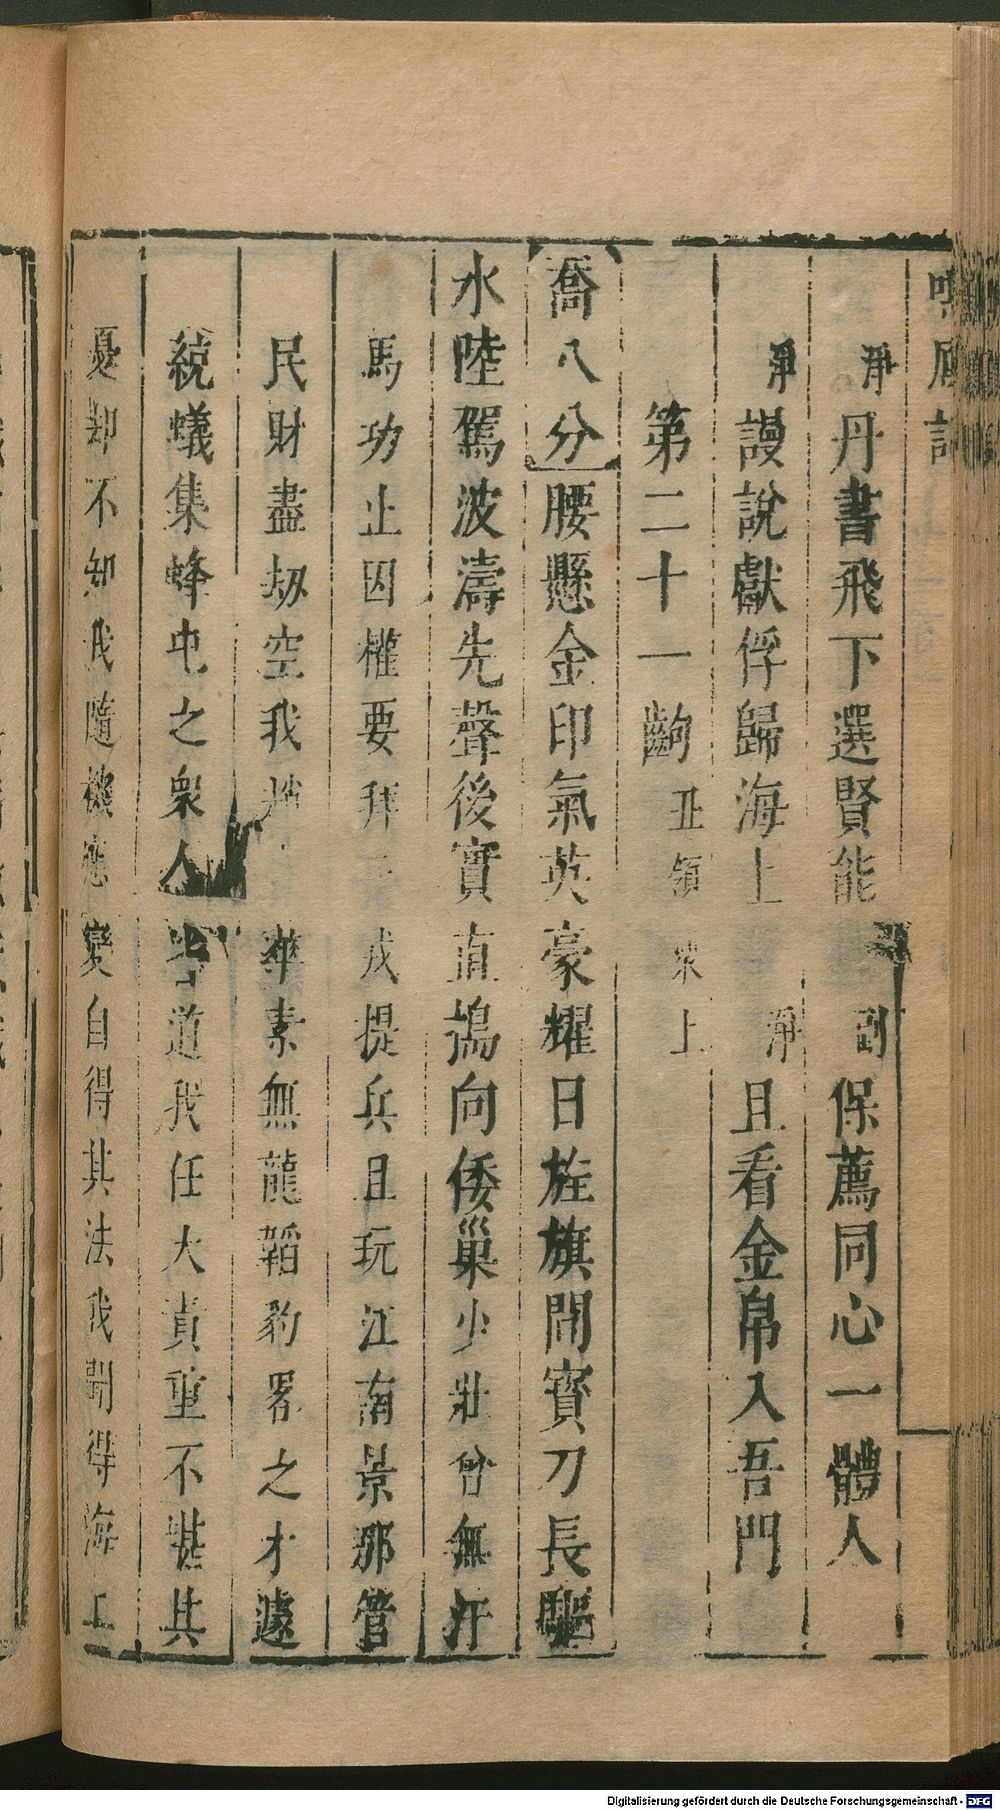 淨丹書飛下選賢能 副保薦同心一體人
淨謾說獻俘歸海上 淨且看金帛入吾門
第二十一齣 丑領衆上
喬八分 腰懸金印氣英豪耀日旌旗鬧寶刀長驅
水陸駕波濤先聲後實直搗向倭巢少壯曾無汗
馬功止因權要拜元戎提兵且玩江南景那管
民財盡劫空我趙 華素無龍韜豹畧之才遽
統蟻集蜂屯之衆人皆道我任大責重不堪其
憂却不知我隨機應變自得其法我聞得海上
Digitalisierung gefördert durch die Deutsche Forschungsgemeinschaft - DFG